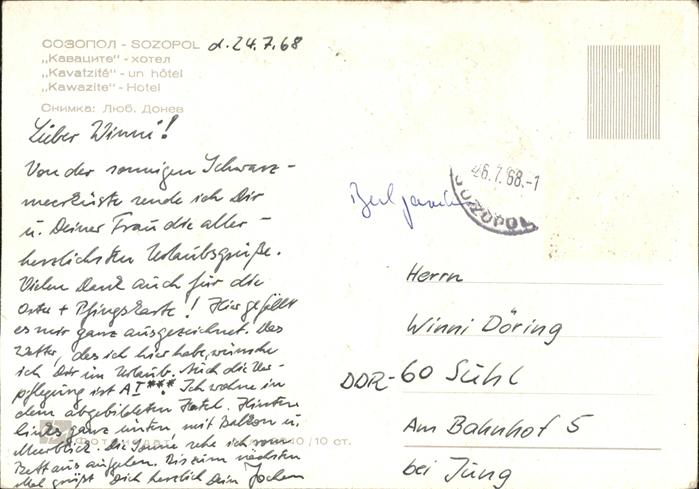 СОЗОПОЛ - SOZOPOL d. 24.7.68
„Каваците" - хотел
„Kavatzité" - un hôtel
„Kawazite" - Hotel
Снимка: Люб. Донев
Lieber Winni!
Von der sonnigen Schwarz-
meerküste sende ich Dir
u. Deiner Frau die aller-
herzlichsten Urlaubsgrüße.
Vielen Dank auch für die
Oster + Pfingstkarte! Hier gefällt
es mir ganz ausgezeichnet. Das
Wetter, das ich hier habe, wünsche
ich Dir im Urlaub. Auch die Ver-
pflegung ist A I***! Ich wohne in
dem abgebildeten Hotel. Hinten
links ganz unten mit Balkon u.
Meerblick. Die Sonne sehe ich vom
Bett aus aufgehen. Bis zum nächsten
Mal grüßt Dich herzlich Dein Jochen
Фотоиздат 10/10 ст.
26.7.68.-1
SOZOPOL
Herrn
Winni Döring
DDR-60 Suhl
Am Bahnhof 5
bei Jung